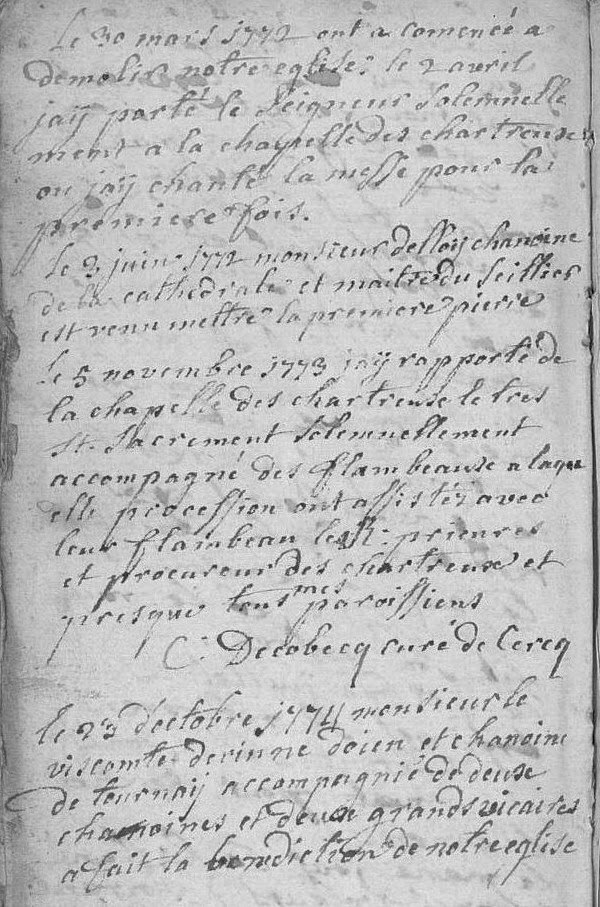 Le 30 mars 1772 ont a comencé a
demolir notre eglise. le 2 avril
jaÿ porté le Seigneur solemnelle
ment a la chapelle des chartreuse
ou jaÿ chanté la messe pour la
premiere fois.
Le 3 juin 1772 monsieur delloÿ chanoine
de la cathedrale et maitre du Seillier
est venu mettre la premiere pierre
le 5 novembre 1773 jaÿ rapporté de
la chapelle des chartreuse le tres
St. Sacrement solemnellement
accompagné des flambeause a laqu
elle procession ont assistéz avec
leur flambeau les R: prieures
et procureur des chartreux et
presque tous mes paroissiens
C: Decobecq curé de Cercq
le 23 d'octobre 1774 monsieur le
viscomte derinne doien et chanoine
de tournaÿ accompagnié de deuse
chanoines et deux grands vicaires
a fait la benediction de notre eglise